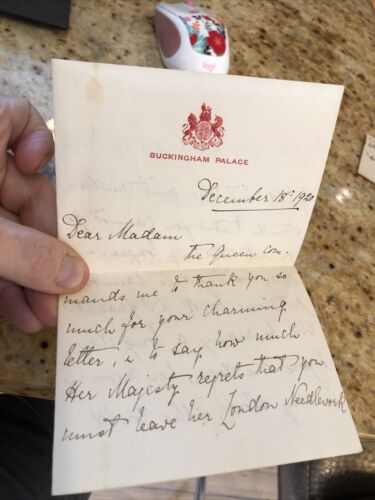 logi
BUCKINGHAM PALACE
December 18th 1920
Dear Madam
The Queen com-
mands me to thank you so
much for your charming
letter, & to say how much
Her Majesty regrets that you
must leave her London Needlework